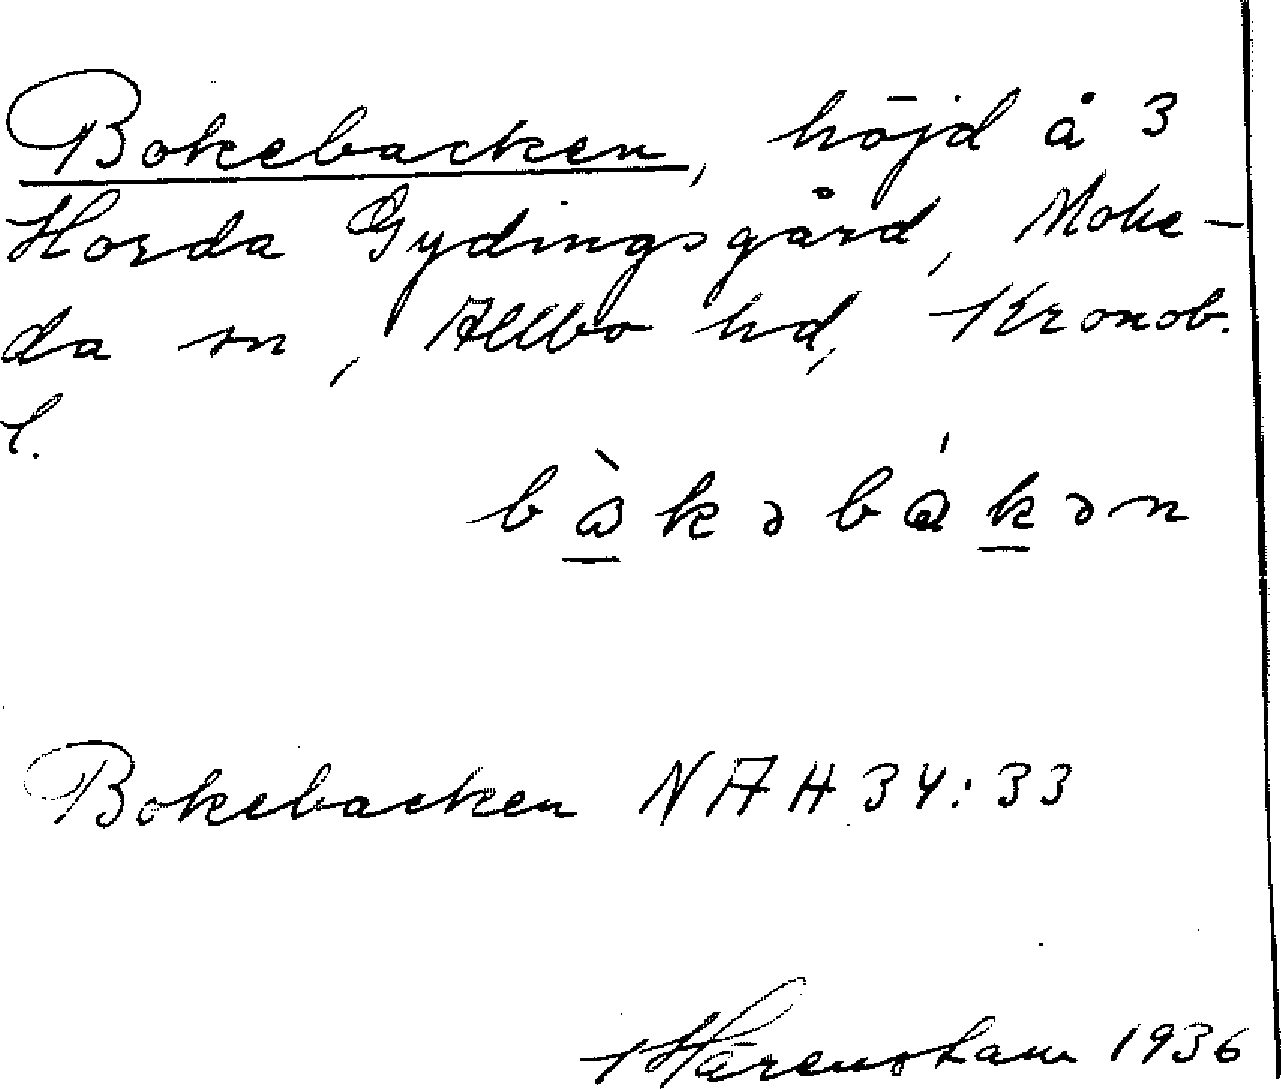 Bokebacken, höjd å 3
Horda Gydingsgård, Moke-
da sn, Allbo hd, Kronob.
l.
Bokebacken NAH 34:33
1936